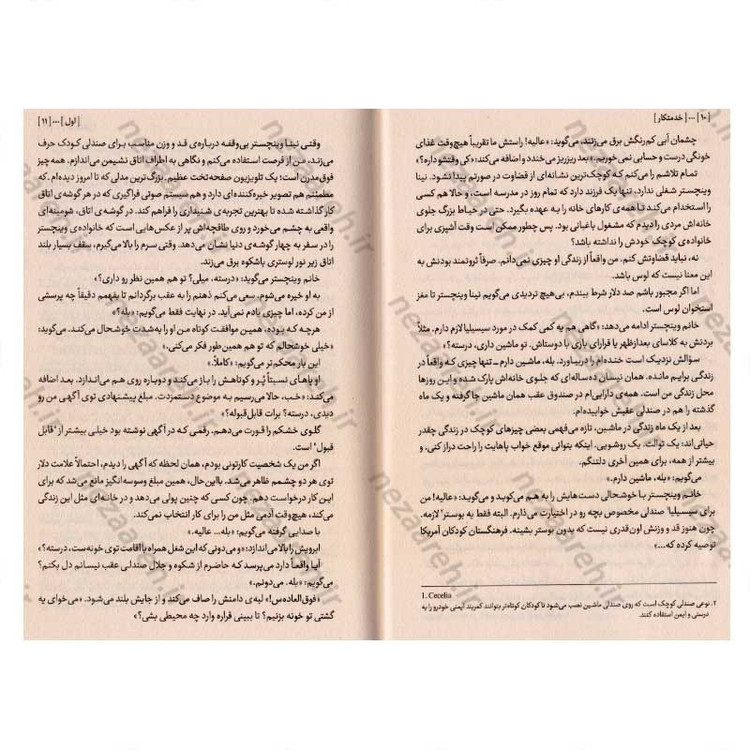 | ۱۰ | ... | خدمتکار |
چشمان آبی کم‌رنگش برق می‌زنند، می‌گوید: «عالیه! راستش ما تقریباً هیچ‌وقت غذای
خونگی درست و حسابی نمی‌خوریم.» بعد ریزریز می‌خندد و اضافه می‌کند: «کی وقتشو داره؟»
تمام تلاشم را می‌کنم که کوچک‌ترین نشانه‌ای از قضاوت در صورتم پیدا نشود. نینا
وینچستر شغلی ندارد، تنها یک فرزند دارد که تمام روز در مدرسه است، و حالا هم کسی
را استخدام می‌کند تا همه‌ی کارهای خانه را به عهده بگیرد. حتی در حیاط بزرگ جلوی
خانه‌اش مردی را دیدم که مشغول باغبانی بود. پس چطور ممکن است وقت آشپزی برای
خانواده‌ی کوچک خودش را نداشته باشد؟
نه، نباید قضاوتش کنم. من واقعاً از زندگی او چیزی نمی‌دانم. صرفاً ثروتمند بودنش به
این معنا نیست که لوس باشد.
اما اگر مجبور باشم صد دلار شرط ببندم، بی‌هیچ تردیدی می‌گویم نینا وینچستر تا مغز
استخوان لوس است.
خانم وینچستر ادامه می‌دهد: «گاهی هم یه کمی کمک در مورد سیسیلیا لازم دارم. مثلاً
بردنش به کلاسای بعدازظهر یا قرارای بازی با دوستاش. تو ماشین داری، درسته؟»
سؤالش نزدیک است خنده‌ام را دربیاورد. بله، ماشین دارم ـ تنها چیزی که واقعاً در
زندگی برایم مانده. همان نیسان ده‌ساله‌ای که جلوی خانه‌اش پارک شده و این روزها
محل زندگی من است. همه‌ی دارایی‌ام در صندوق عقب همان ماشین جا گرفته و یک ماه
گذشته را هم در صندلی عقبش خوابیده‌ام.
بعد از یک ماه زندگی در ماشین، تازه می‌فهمی بعضی چیزهای کوچک در زندگی چقدر
حیاتی‌اند: یک توالت. یک روشویی. اینکه بتوانی موقع خواب پاهایت را راحت دراز کنی، و
بیشتر از همه، برای همین آخری دلتنگم.
می‌گویم: «بله، ماشین دارم.»
خانم وینچستر با خوشحالی دست‌هایش را به هم می‌کوبد و می‌گوید: «عالیه! من
برای سیسیلیا¹ صندلی مخصوص بچه رو در اختیارت می‌ذارم. البته فقط یه بوستر² لازمه.
چون هنوز قد و وزنش اون‌قدری نیست که بدون بوستر بشینه. فرهنگستان کودکان آمریکا
توصیه کرده که...»
1. Cecelia
۲. نوعی صندلی کوچک است که روی صندلی ماشین نصب می‌شود تا کودکان کوتاه‌تر بتوانند کمربند ایمنی خودرو را به
درستی و ایمن استفاده کنند.
| اول | ... | ۱۱ |
وقتی نینا وینچستر بی‌وقفه درباره‌ی قد و وزن مناسب برای صندلی کودک حرف
می‌زند، من از فرصت استفاده می‌کنم و نگاهی به اطراف اتاق نشیمن می‌اندازم. همه چیز
فوق‌مدرن است: یک تلویزیون صفحه‌تخت عظیم، بزرگ‌ترین مدلی که تا امروز دیده‌ام. که
مطمئنم هم تصویر خیره‌کننده‌ای دارد و هم سیستم صوتی فراگیری که در هر گوشه‌ی اتاق
کار گذاشته شده تا بهترین تجربه‌ی شنیداری را فراهم کند. در گوشه‌ی اتاق، شومینه‌ای
واقعی به چشم می‌خورد و روی طاقچه‌اش پر از عکس‌هایی است که خانواده‌ی وینچستر
را در سفر به چهار گوشه‌ی دنیا نشان می‌دهد. وقتی سرم را بالا می‌گیرم، سقف بسیار بلند
اتاق زیر نور لوستری باشکوه برق می‌زند.
خانم وینچستر می‌گوید: «درسته، میلی؟ تو هم همین نظر رو داری؟»
به او خیره می‌شوم. سعی می‌کنم ذهنم را به عقب برگردانم تا بفهمم دقیقاً چه پرسشی
از من کرده، اما چیزی یادم نمی‌آید. در نهایت فقط می‌گویم: «بله؟»
هرچه که بوده، همین موافقت کوتاه من او را به‌شدت خوشحال می‌کند. می‌گوید:
«خیلی خوشحالم که تو هم همین‌طور فکر می‌کنی.»
این بار محکم‌تر می‌گویم: «کاملاً.»
او پاهای نسبتاً پُر و کوتاهش را باز می‌کند و دوباره روی هم می‌اندازد. بعد اضافه
می‌کند: «خب، حالا می‌رسیم به موضوع دستمزدت. مبلغ پیشنهادی توی آگهی من رو
دیدی، درسته؟ برات قابل‌قبوله؟»
گلوی خشکم را قورت می‌دهم. رقمی که در آگهی نوشته بود خیلی بیشتر از 'قابل
قبول' است.
اگر من یک شخصیت کارتونی بودم، همان لحظه که آگهی را دیدم، احتمالاً علامت دلار
توی هر دو چشمم ظاهر می‌شد. بااین‌حال، همین مبلغ وسوسه‌انگیز مانع می‌شد که برای
این کار درخواست دهم. چون کسی که چنین پولی می‌دهد و در خانه‌ای مثل این زندگی
می‌کند، هیچ‌وقت آدمی مثل من را برای کار انتخاب نمی‌کند.
با صدایی گرفته می‌گویم: «بله... عالیه.»
ابرویش را بالا می‌اندازد: «و می‌دونی که این شغل همراه با اقامت توی خونه‌ست، درسته؟»
آیا واقعاً دارد می‌پرسد که حاضرم از شکوه و جلال صندلی عقب نیسانم دل بکنم؟
می‌گویم: «بله. می‌دونم.»
«فوق‌العاده‌س!» لبه‌ی دامنش را صاف می‌کند و از جایش بلند می‌شود. «می‌خوای یه
گشتی تو خونه بزنیم؟ تا ببینی قراره وارد چه محیطی بشی؟»
nezaareh.ir